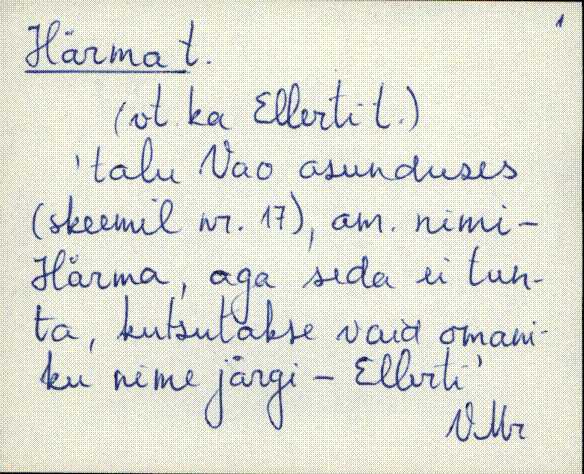 1
Härma t.
(vt. ka Ellerti t.)
'talu Vao asunduses
(skeemil nr. 17), am. nimi-
Härma, aga seda ei tun-
ta, kutsutakse vaid omani-
ku nime järgi - Ellerti'
VMr